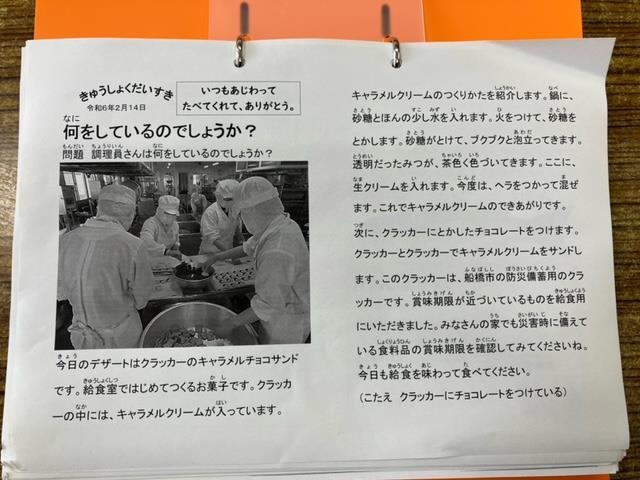 きゅうしょくだいすき
令和6年2月14日
いつもあじわって
たべてくれて、ありがとう。
何をしているのでしょうか？
問題　調理員さんは何をしているのでしょうか？
今日のデザートはクラッカーのキャラメルチョコサンド
です。給食室ではじめてつくるお菓子です。クラッカ
ーの中には、キャラメルクリームが入っています。
キャラメルクリームのつくりかたを紹介します。鍋に、
砂糖とほんの少し水を入れます。火をつけて、砂糖を
とかします。砂糖がとけて、ブクブクと泡立ってきます。
透明だったみつが、茶色く色づいてきます。ここに、
生クリームを入れます。今度は、ヘラをつかって混ぜ
ます。これでキャラメルクリームのできあがりです。
次に、クラッカーにとかしたチョコレートをつけます。
クラッカーとクラッカーでキャラメルクリームをサンドし
ます。このクラッカーは、船橋市の防災備蓄用のクラ
ッカーです。賞味期限が近づいているものを給食用
にいただきました。みなさんの家でも災害時に備えて
いる食料品の賞味期限を確認してみてくださいね。
今日も給食を味わって食べてください。
（こたえ　クラッカーにチョコレートをつけている）